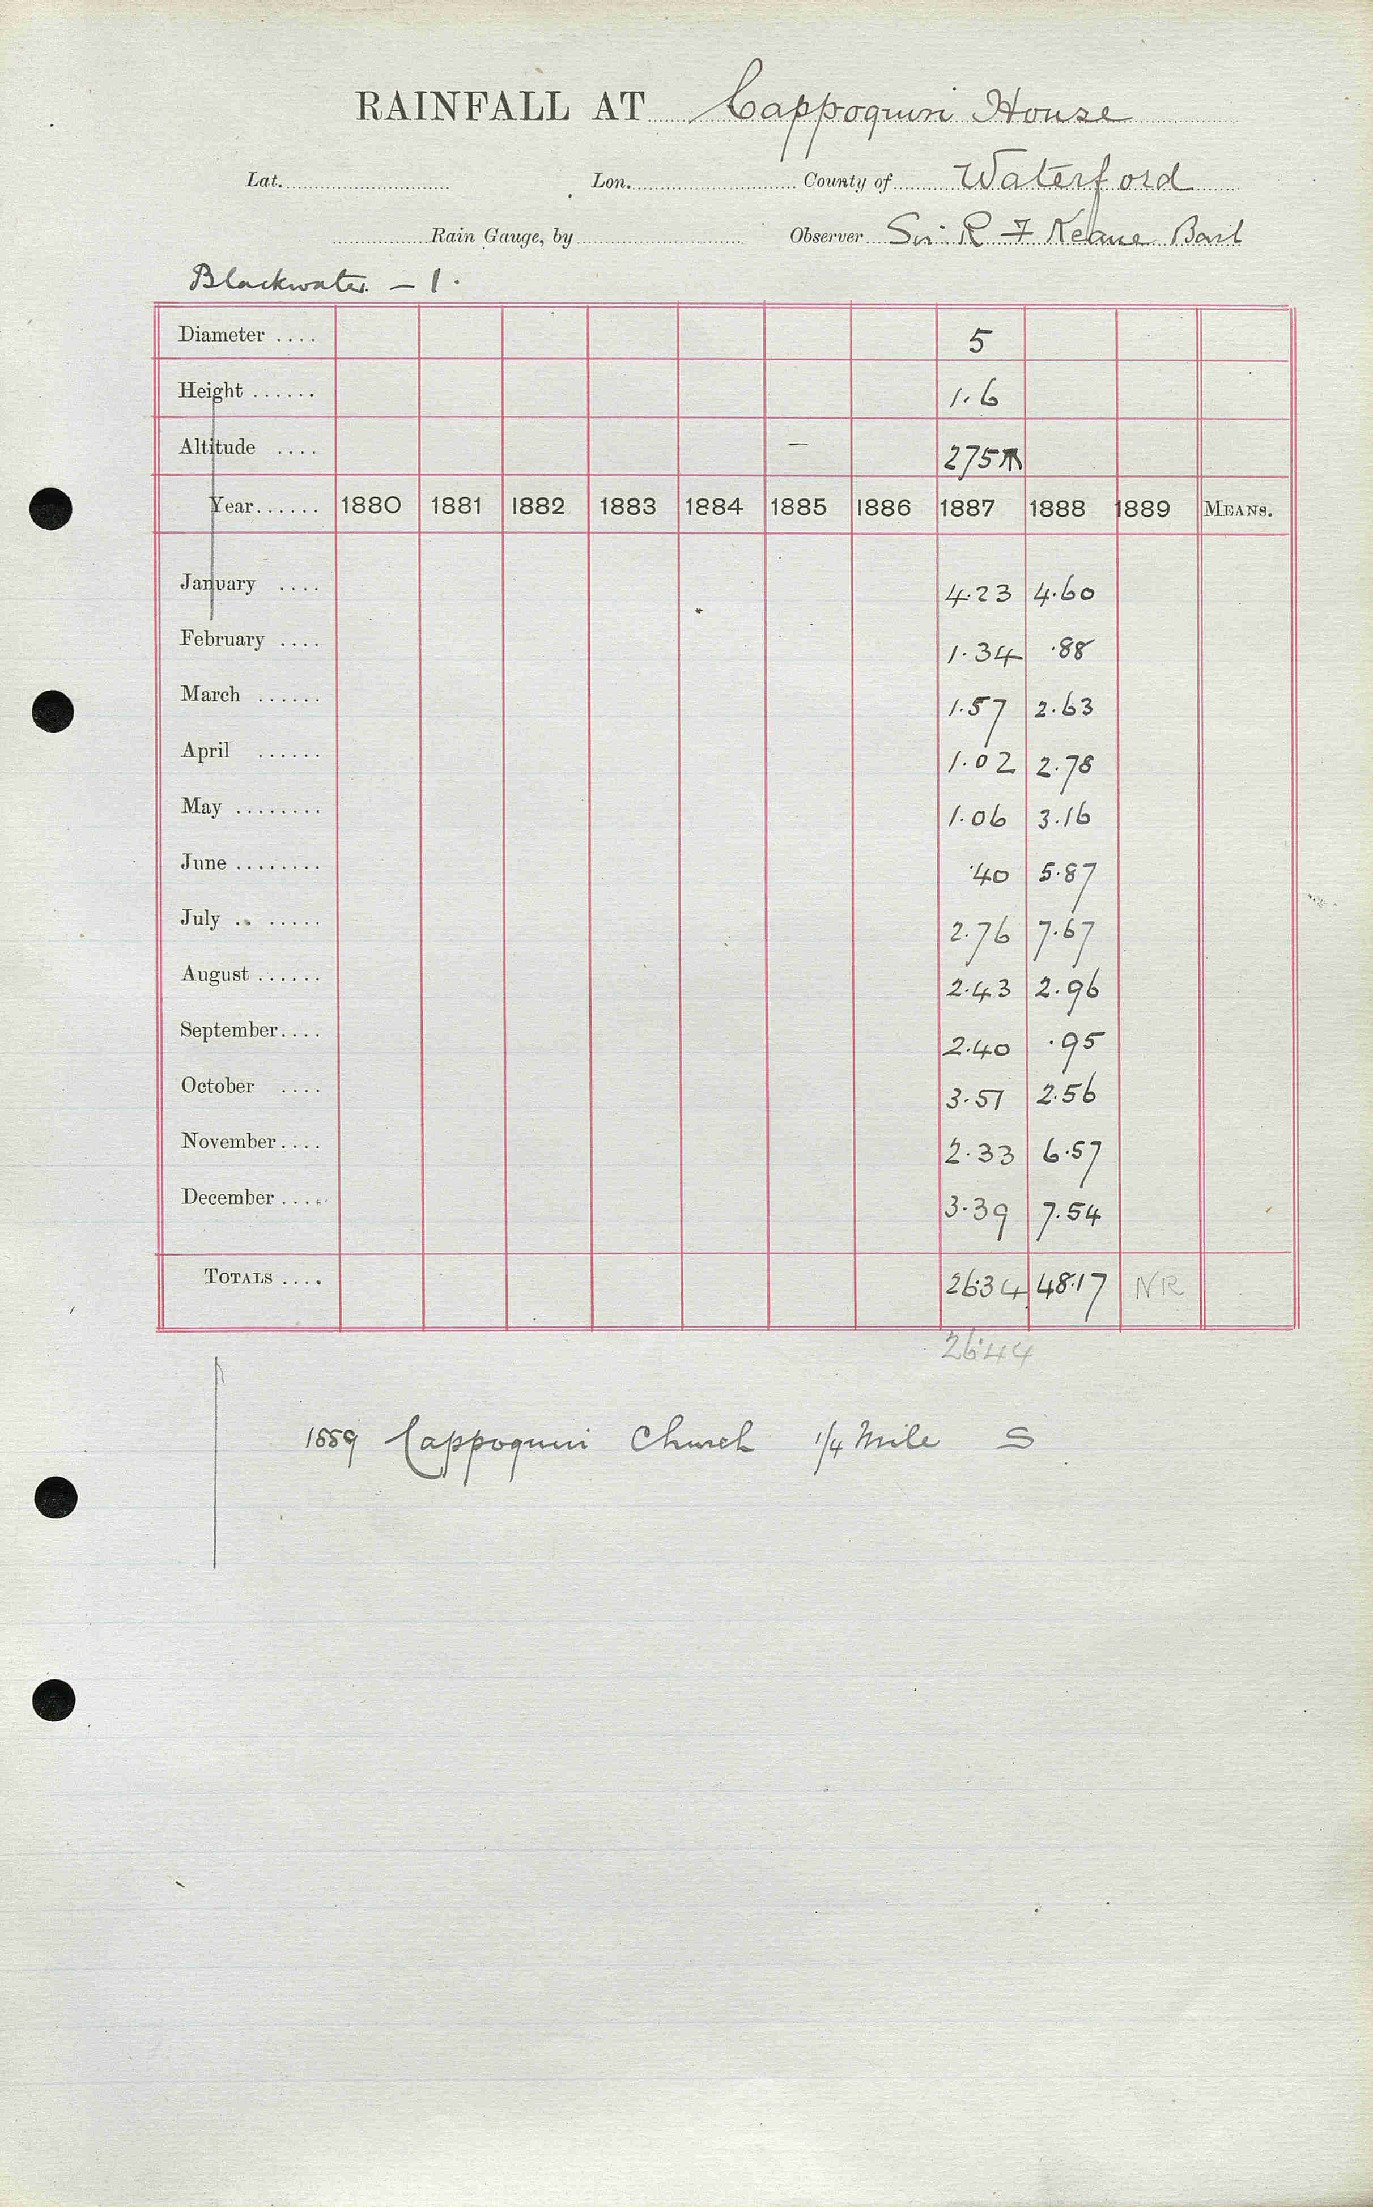 RAINFALL AT Cappoquin House
Lat. Lon. County of Waterford
Rain Gauge, by Observer Sir R F Keane Bart
Blackwater - 1.
Diameter .... 5
Height ...... 1.6
Altitude .... — 275
Year...... 1880 1881 1882 1883 1884 1885 1886 1887 1888 1889 MEANS.
January .... 4.23 4.60
February .... 1.34 .88
March ...... 1.57 2.63
April ...... 1.02 2.78
May ........ 1.06 3.16
June ........ .40 5.87
July .. ..... 2.76 7.67
August ...... 2.43 2.96
September.... 2.40 .95
October .... 3.51 2.56
November.... 2.33 6.57
December .... 3.39 7.54
TOTALS .... 26.34 48.17 NR
26.44
1889 Cappoquin Church 1/4 Mile S